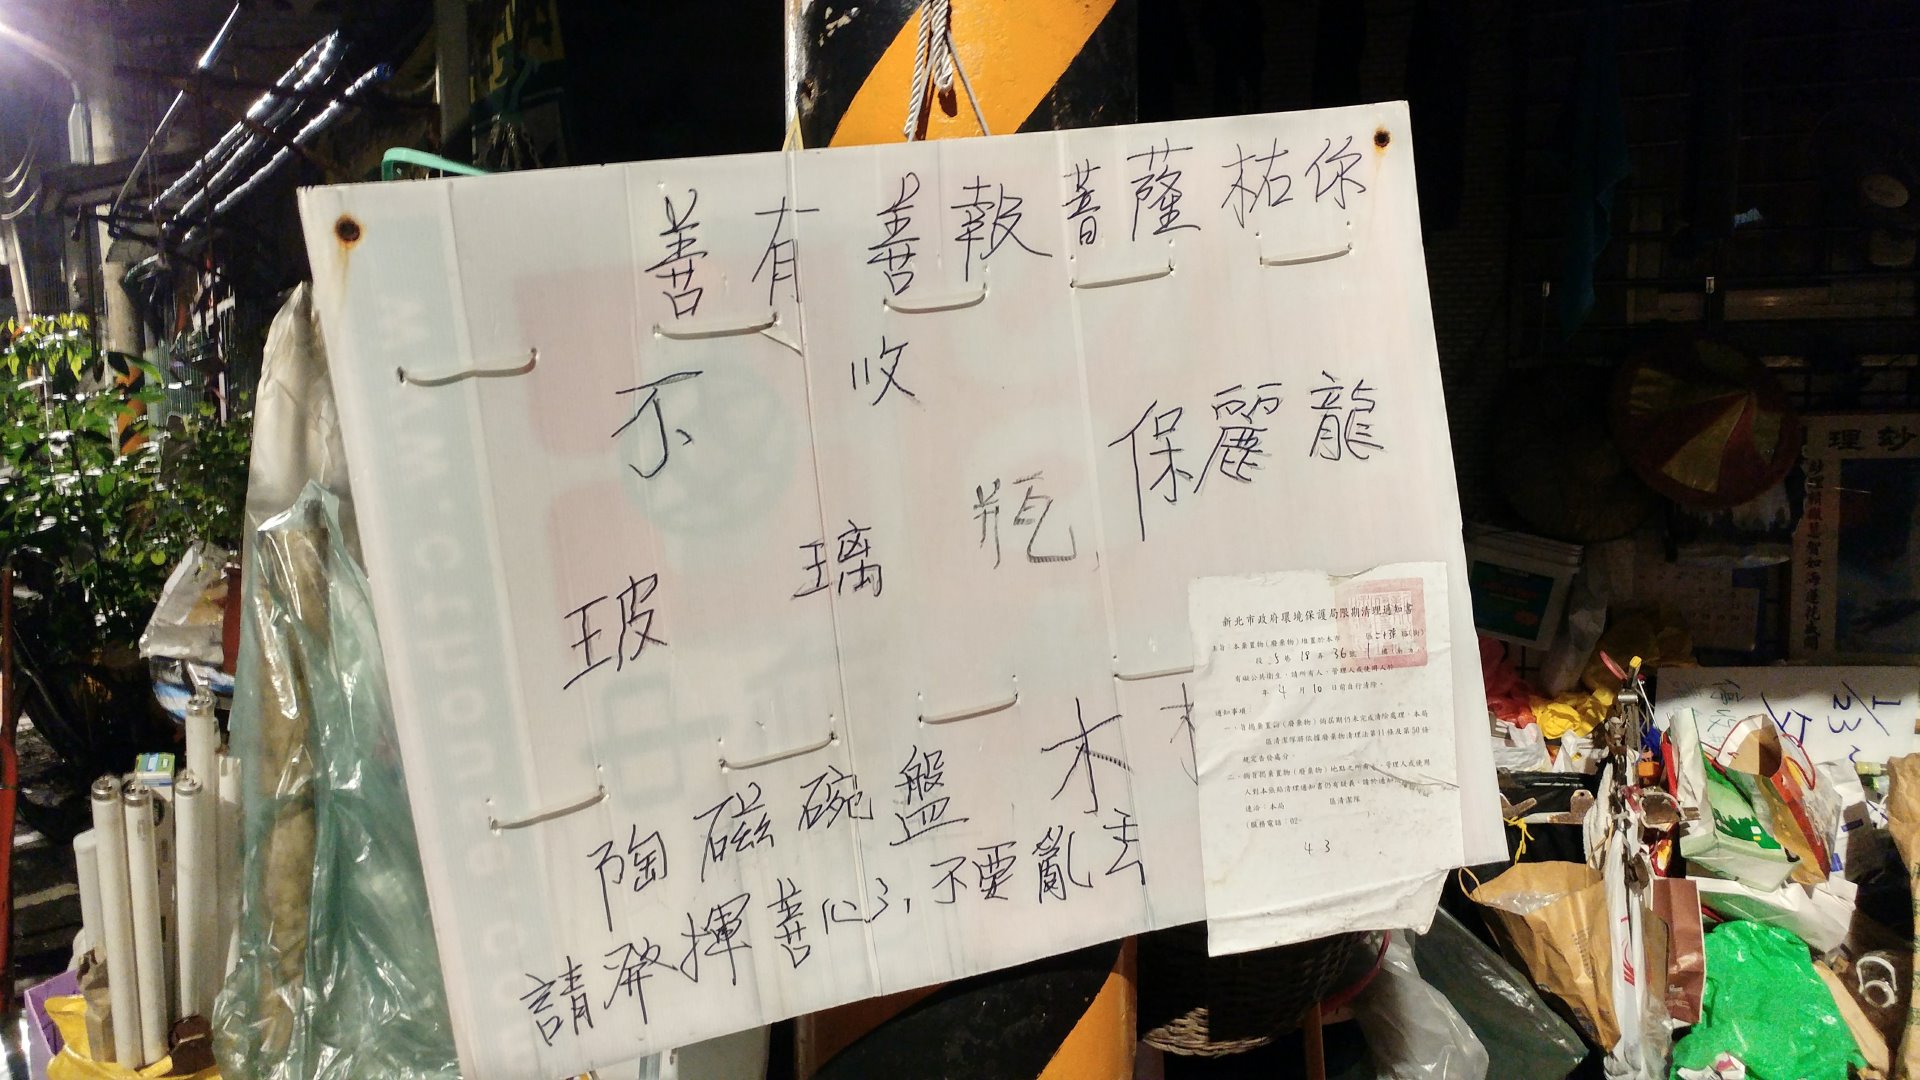 善有善報菩薩祐你
不收
保麗龍
玻璃瓶,
木
陶磁碗盤
請發揮善心,不要亂丟
新北市政府環境保護局限期清理通知書
主旨:本棄置物(廢棄物)堆置於本市 區
段 5 巷 18 弄 36 號 1 樓
有礙公共衛生,請所有人、管理人或使用人於
年 4 月 10 日前自行清除。
通知事項:
一、旨揭棄置物(廢棄物)倘屆期仍未完成清除處理,本局
區清潔隊將依據廢棄物清理法第11條及第50條
規定告發處分。
二、倘旨揭棄置物(廢棄物)地點之所有人、管理人或使用
人對本張貼清理通知書仍有疑義,請於通知
連洽:本局 區清潔隊
(服務電話:02- )
4 3
理 鈔
1/23~